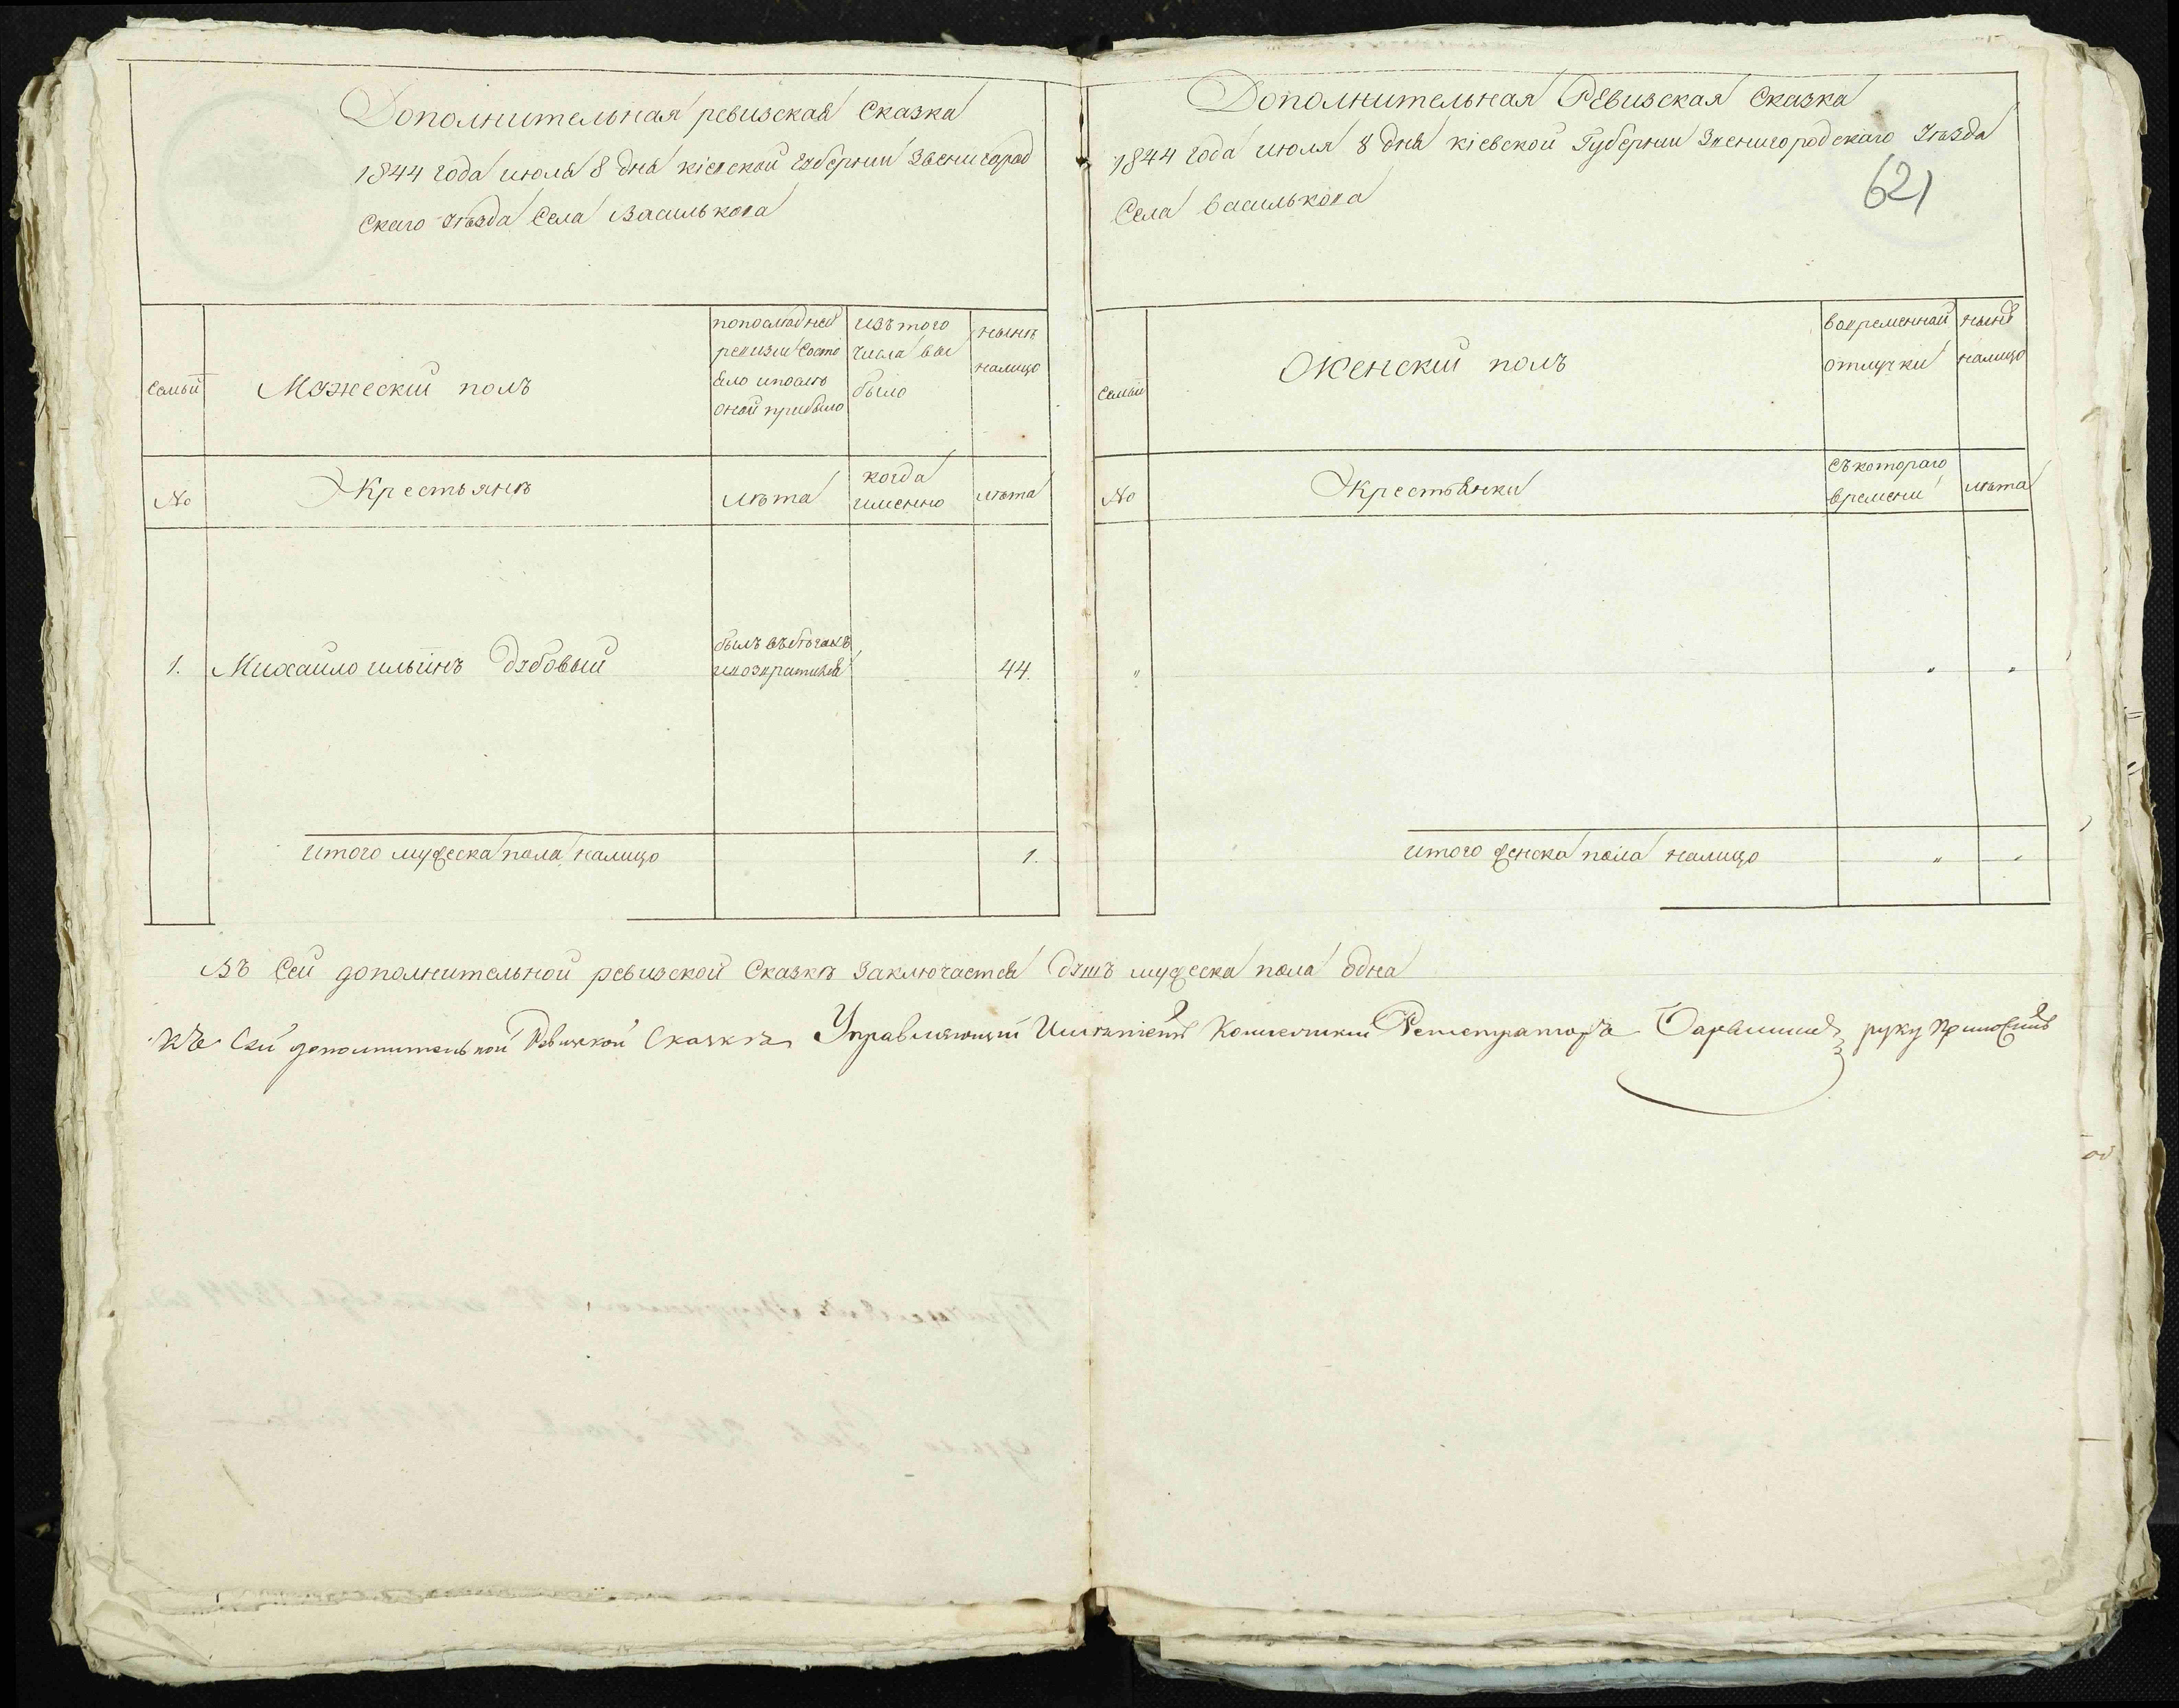 Дополнительная ревизская Сказка
1844 года июля 8 дня кіевской губерніи Звенигород
скаго уѣзда Села Василькова
Семьи
Мужескій полъ
попослѣдней
ревизіи Состо
яло ипослѣ
оной прибыло
Изъ того
числа вы
было
нынѣ
налицо
No
Крестьянѣ
лѣта
когда
именно
лѣта
1. Михайло ильинъ Дубовый
былъ въбѣгахъ
ивозвратился
44.
итого мужеска пола налицо 1.
Дополнительная Ревизская Сказка
1844 года июля 8 дня кіевской Губерніи Звенигородскаго Уѣзда
621
Села Василькова
Семьи
Женскій полъ
вовременной
отлучки
нынѣ
налицо
No
Крестьянки
съкотораго
времени
лѣта
" " "
итого женска пола налицо " "
Въ Сей дополнительной ревизской Сказкѣ Заключается душъ мужеска пола одна
Къ Сей дополнительной Ревизской Сказкѣ Управляющій Имѣніемъ руку приложилъ